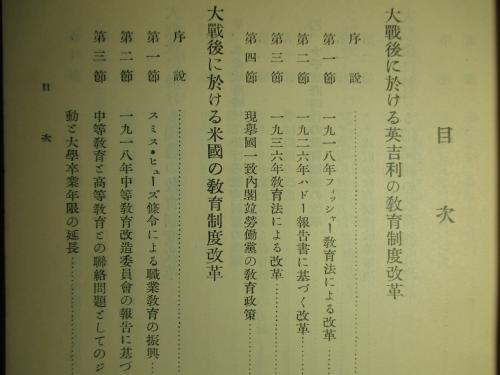 目次
大戰後に於ける英吉利の敎育制度改革
序說
第一節 一九一八年フィッシャー敎育法による改革
第二節 一九二六年ハドー報吿書に基づく改革
第三節 一九三六年敎育法による改革
第四節 現擧國一致內閣竝勞働黨の敎育政策
大戰後に於ける米國の敎育制度改革
序說
第一節 スミス・ヒューズ條令による職業敎育の振興
第二節 一九一八年中等敎育改造委員會の報吿に基づ
第三節 中等敎育と高等敎育との聯絡問題としてのジ
動と大學卒業年限の延長
目次